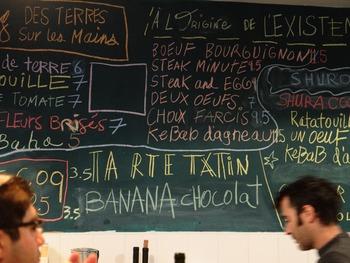 DES TERRES
Sur les Mains
de terre 6
OUILLE 7
e TOMATE 7
FLEURS BRISÉS 7
Baba 5
¡À L'ORIGINE de L'EXISTEN
BOEUF BOURGUIGNON
STEAK MINUTE 9.5
STEAK and EGG
DEUX OEUFS 7
CHOUX FARCIS 9.5
KeBaB d'agneau
SHURO
SHURACO
Ratatouil
UN OEUF
KeBaB d'a
3.5 TARTE TATIN
3.5 BANANA chocolat